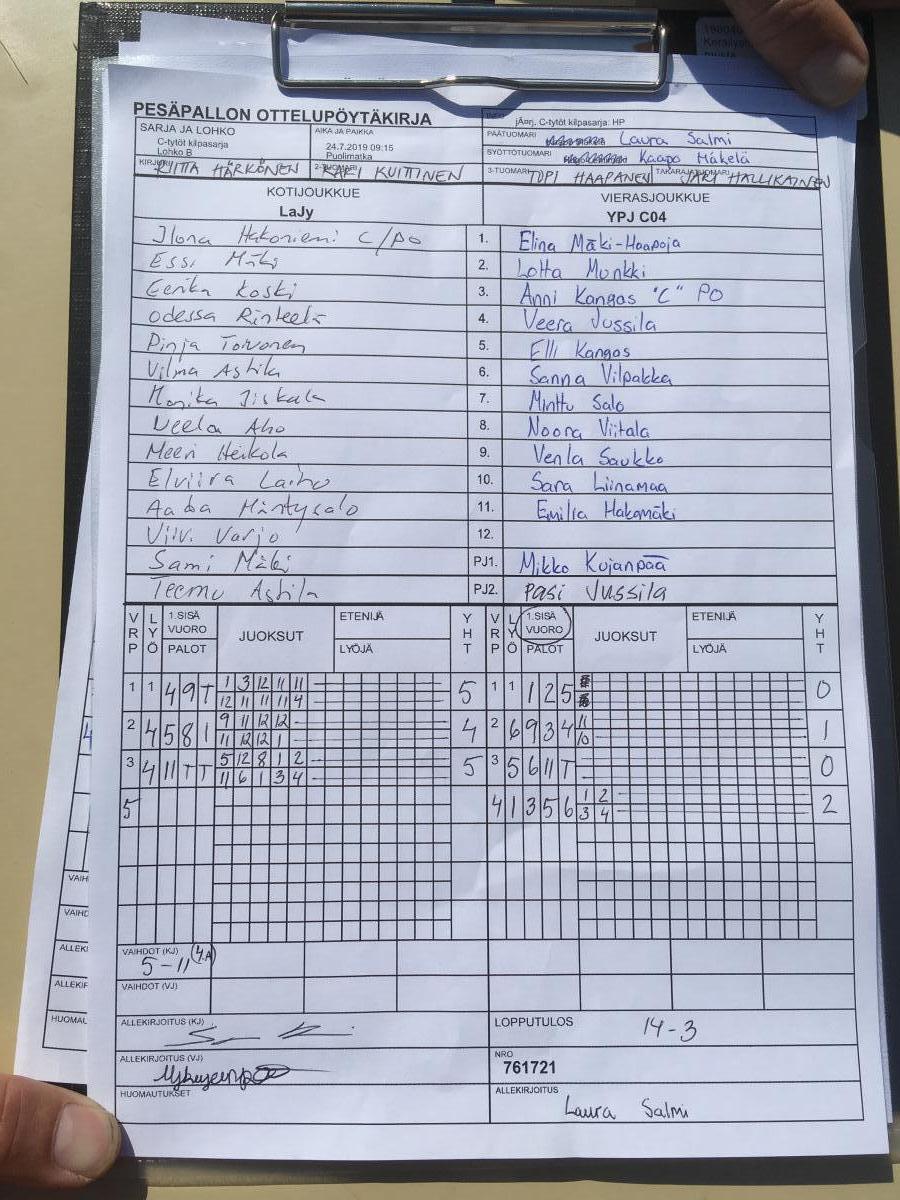 PESÄPALLON OTTELUPÖYTÄKIRJA
jÃ¤rj. C-tytöt kilpasarja: HP
SARJA JA LOHKO
C-tytöt kilpasarja
Lohko B
AIKA JA PAIKKA
24.7.2019 09:15
Puolimatka
PÄÄTUOMARI Laura Salmi
SYÖTTÖTUOMARI Kaapo Mäkelä
KIRJURI RIITTA HÄRKÖNEN
2-TUOMARI KARI KUITTINEN
3-TUOMARI TOPI HAAPANEN
TAKARAJATUOMARI JARI HALLIKAINEN
KOTIJOUKKUE
LaJy
VIERASJOUKKUE
YPJ C04
Ilona Hakoniemi C/PO 1. Elina Mäki-Haapoja
Essi Mäki 2. Lotta Munkki
Eerika Koski 3. Anni Kangas "C" PO
Odessa Rinteelä 4. Veera Jussila
Pinja Toivonen 5. Elli Kangas
Vilma Astila 6. Sanna Vilpakka
Monika Jiskala 7. Minttu Salo
Neela Aho 8. Noora Viitala
Meeri Heikola 9. Venla Saukko
Elviira Laiho 10. Sara Liinamaa
Aada Mäntysalo 11. Emilia Hakomäki
Viivi Varjo 12.
Sami Mäki PJ1. Mikko Kujanpää
Teemu Astila PJ2. Pasi Jussila
VRP LYÖ 1.SISÄ VUORO PALOT JUOKSUT ETENIJÄ LYÖJÄ YHT VRP LYÖ 1.SISÄ VUORO PALOT JUOKSUT ETENIJÄ LYÖJÄ YHT
1 1 4 9 T 1 3 12 11 11 5 1 1 1 2 5 0
12 11 11 11 4
2 4 5 8 1 9 11 12 12 4 2 6 9 3 4 11 1
11 12 12 1 10
3 4 11 T T 5 12 8 1 2 5 3 5 6 11 T 0
11 6 1 3 4
5 4 1 3 5 6 1 2 2
3 4
VAIHDOT (KJ)
5-11 (4.A)
VAIHDOT (VJ)
ALLEKIRJOITUS (KJ)
LOPPUTULOS 14-3
ALLEKIRJOITUS (VJ)
NRO
761721
HUOMAUTUKSET
ALLEKIRJOITUS
Laura Salmi
VAIHD
ALLEKI
ALLEKIR
HUOMAU